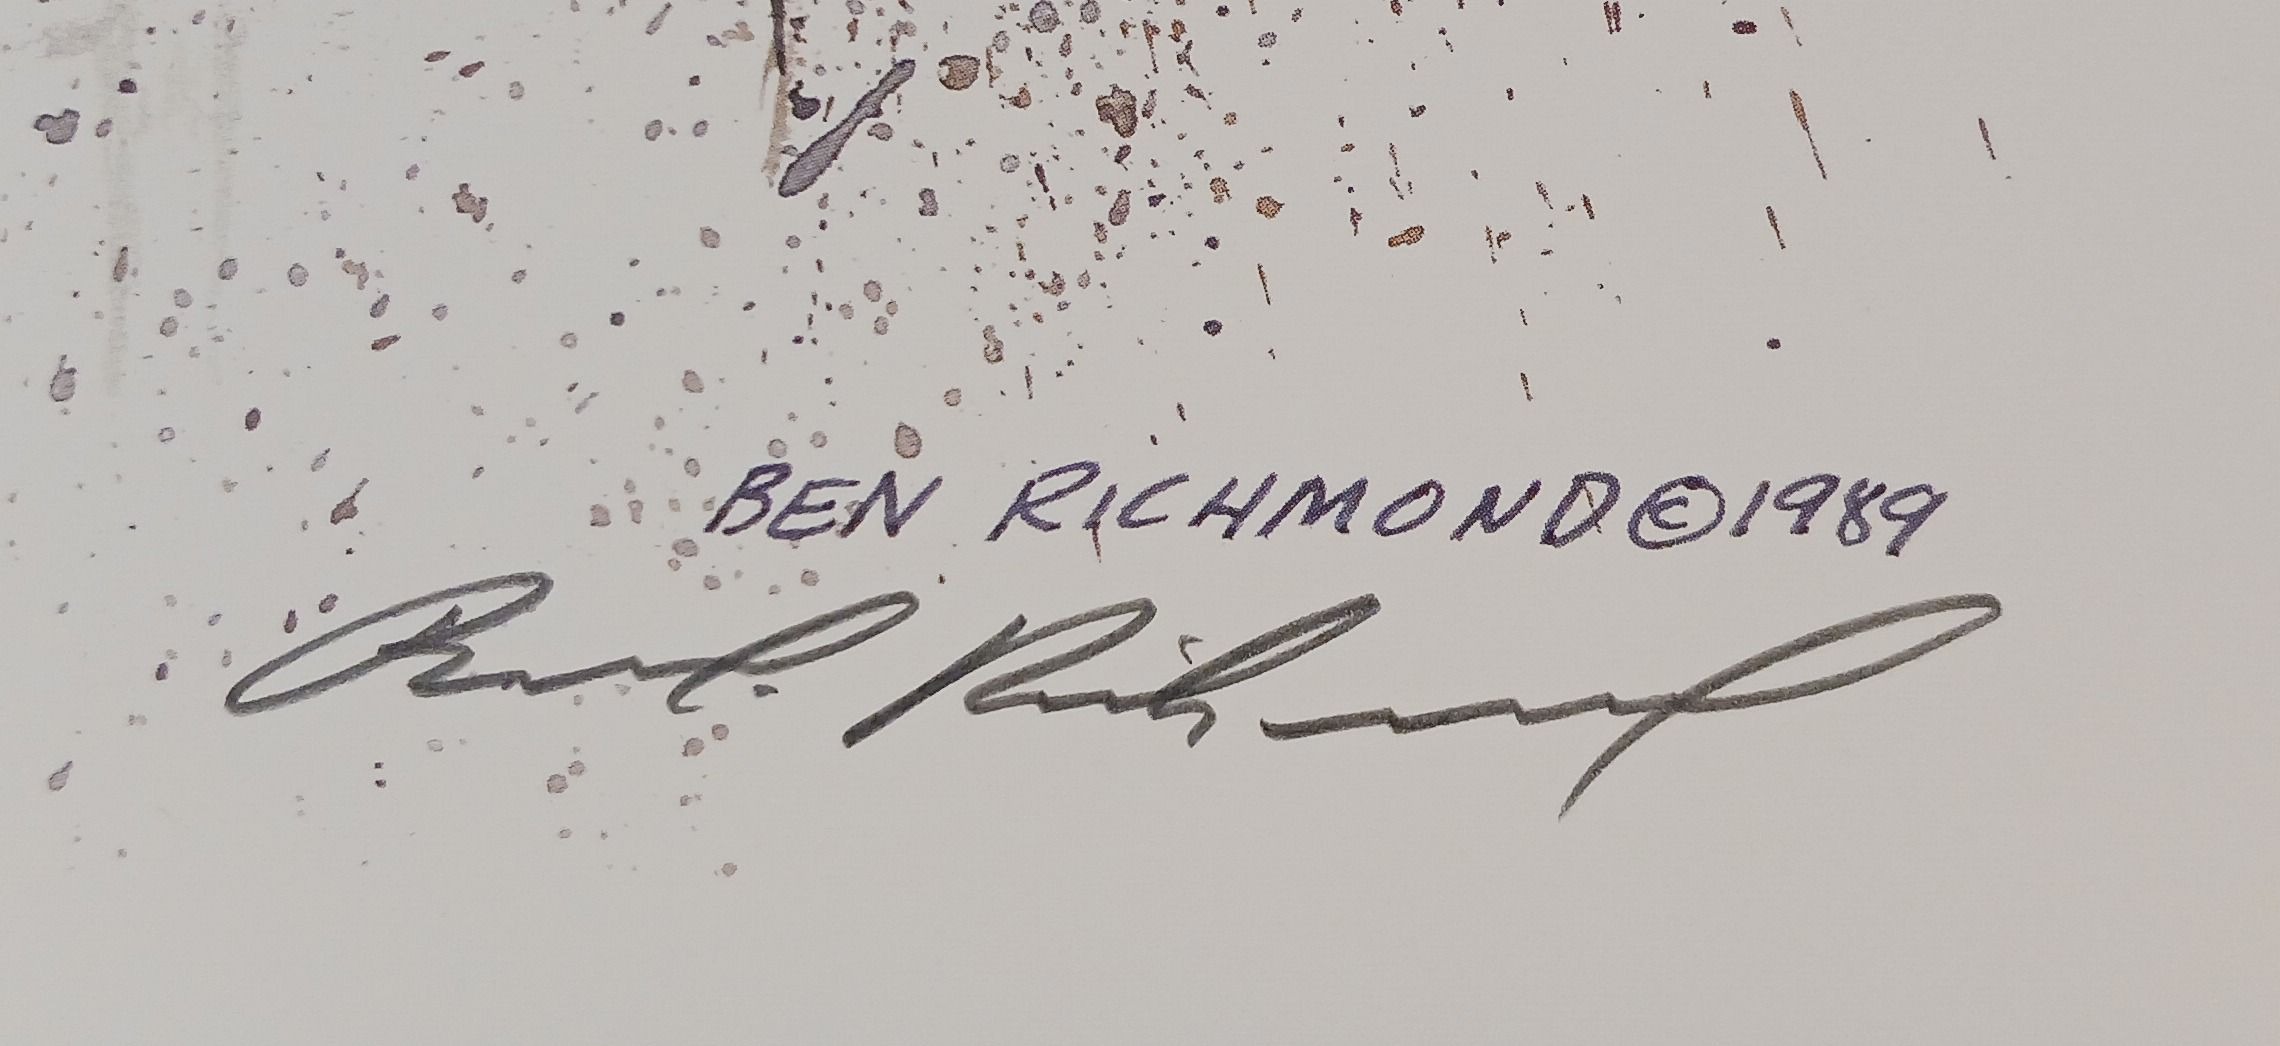 BEN RICHMOND©1989
Ben Richmond